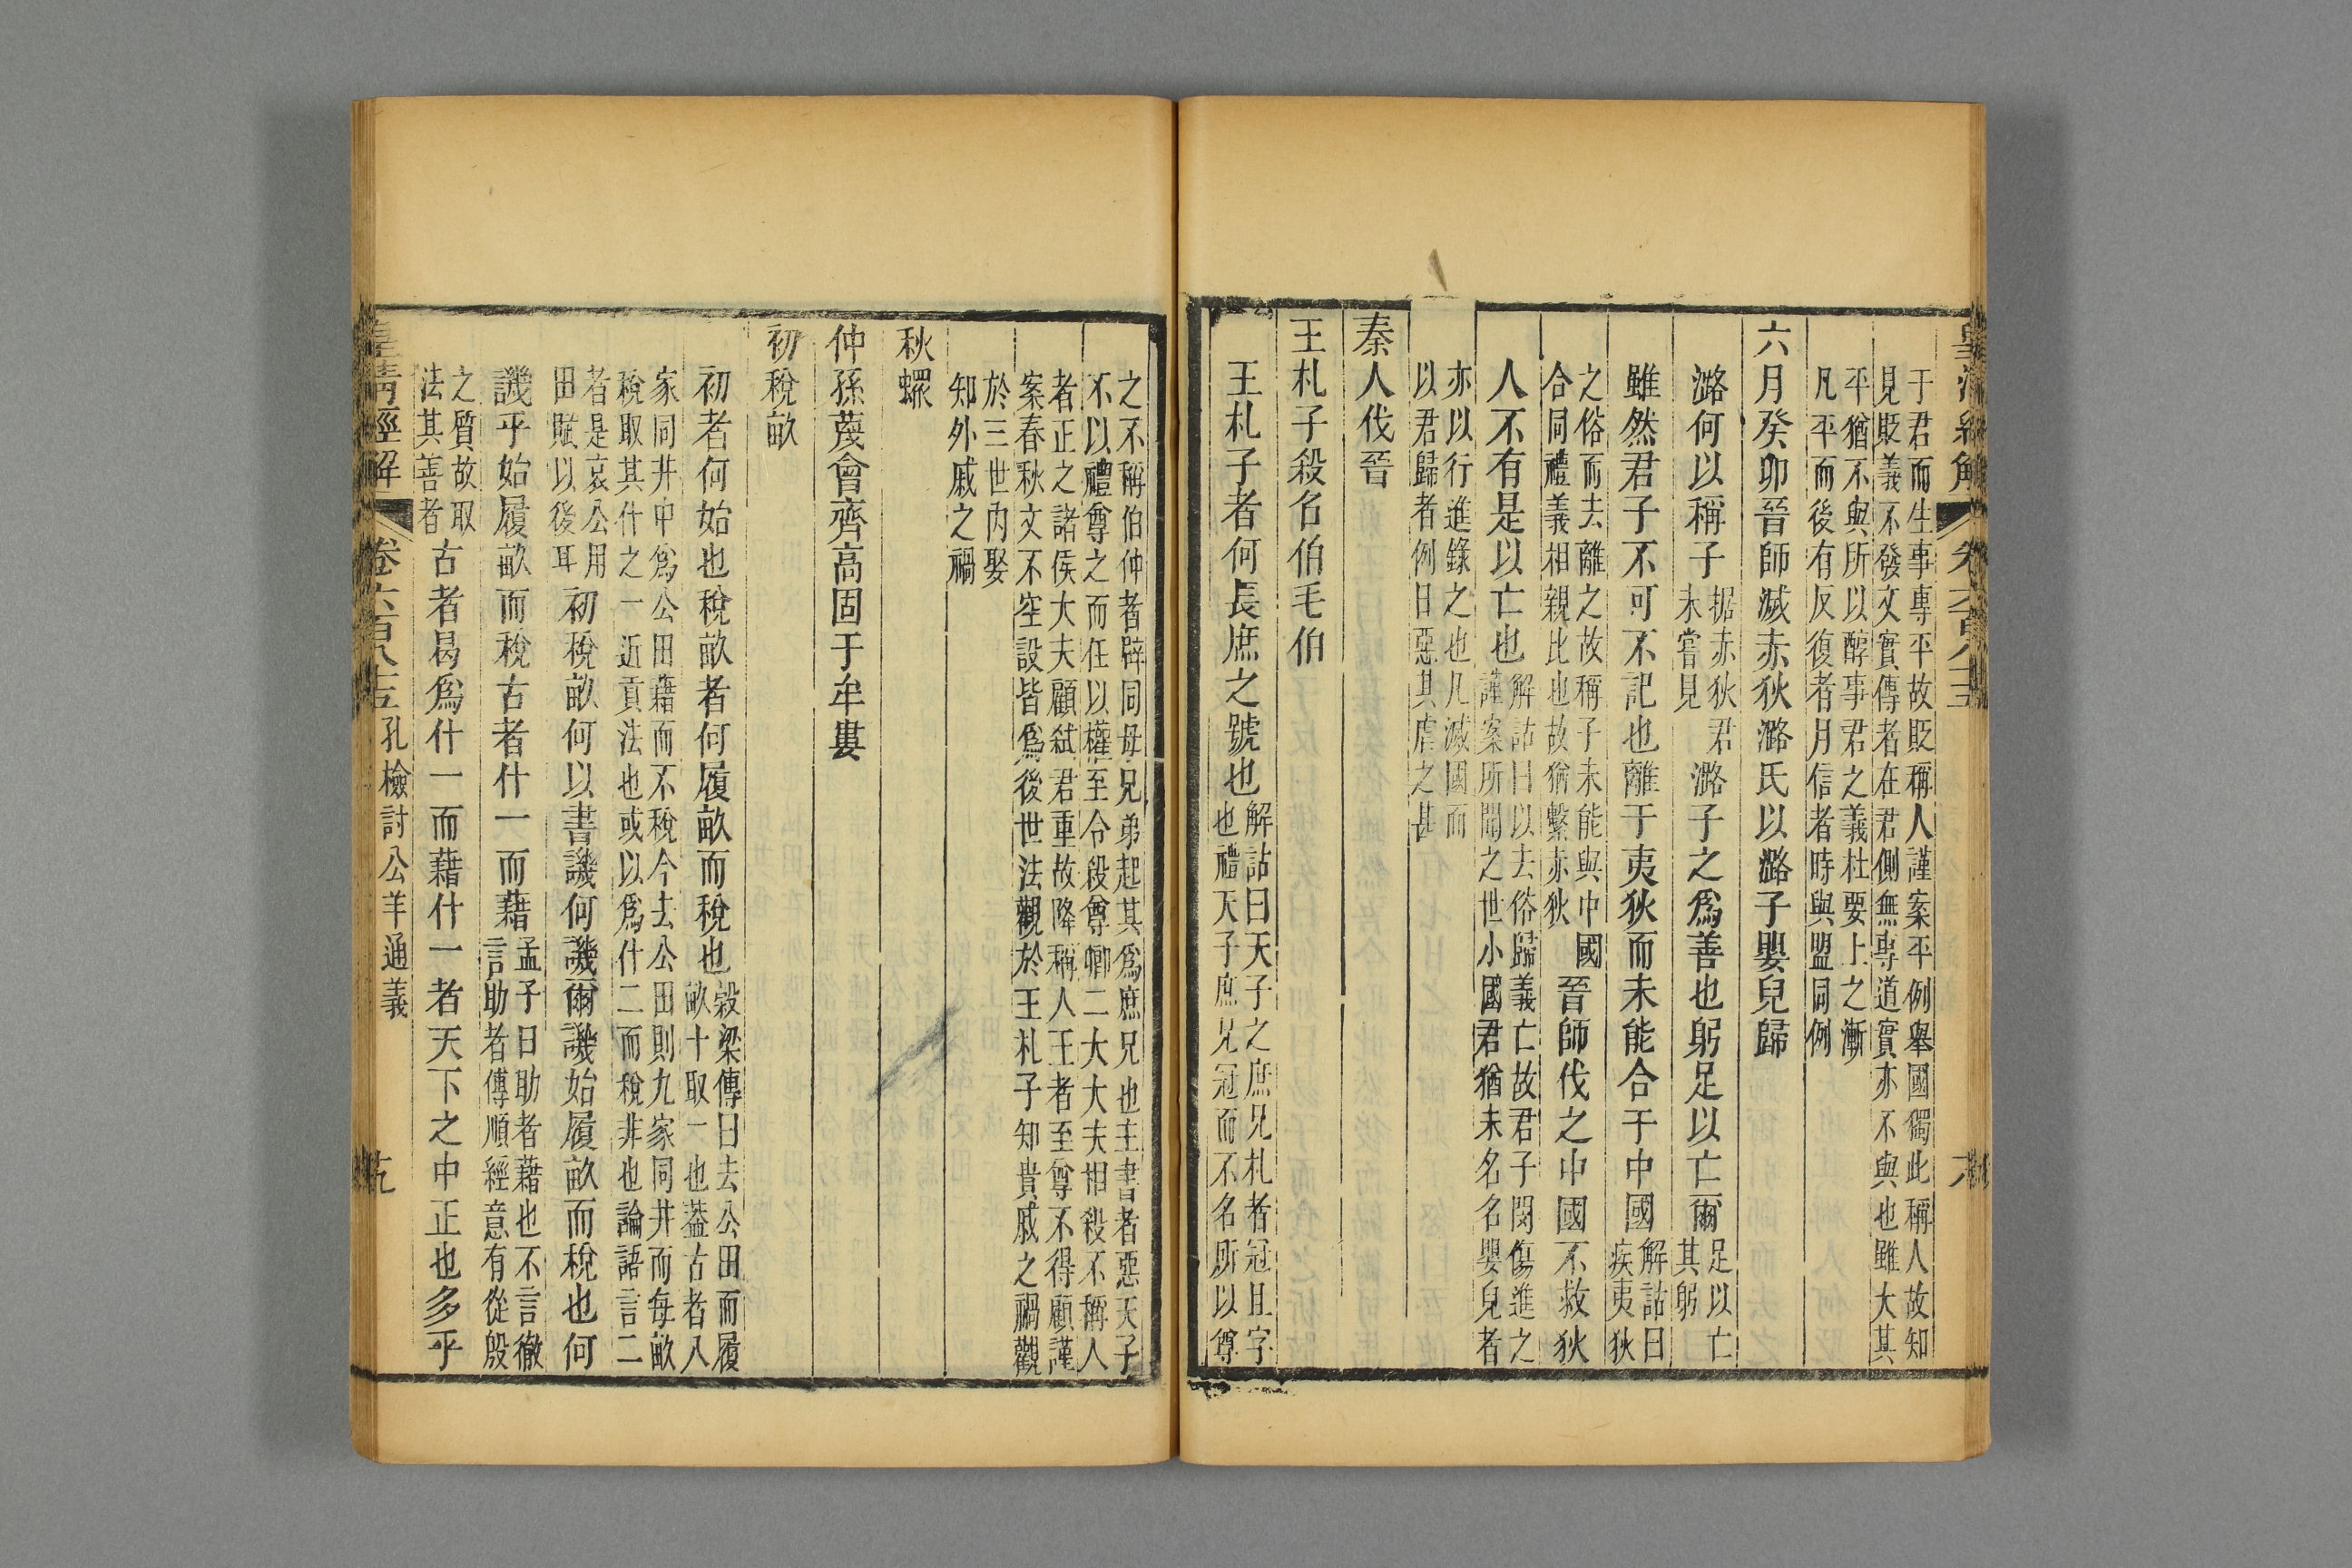 于君而生事專平故貶稱人謹案平例舉國獨此稱人故知
見貶義不發文實傳者在君側無專道實亦不與也雖大其
平猶不與所以醇事君之義杜要上之漸
凡平而後有反復者月信者時與盟同例
六月癸卯晉師滅赤狄潞氏以潞子嬰兒歸
潞何以稱子
据赤狄君
未嘗見
潞子之爲善也躬足以亡爾
足以亡
其躬
雖然君子不可不記也離于夷狄而未能合于中國
解詁曰
疾夷狄
之俗而去離之故稱子未能與中國
合同禮義相親比也故猶繫赤狄
晉師伐之中國不救狄
人不有是以亡也
解詁曰以去俗歸義亡故君子閔傷進之
謹案所聞之世小國君猶未名名嬰兒者
亦以行進錄之也凡滅國而
以君歸者例日惡其虐之甚
秦人伐晉
王札子殺召伯毛伯
王札子者何長庶之號也
解詁曰天子之庶兄札者冠且字
也禮天子庶兄冠而不名所以尊
之不稱伯仲者辟同母兄弟起其爲庶兄也主書者惡天子
不以禮尊之而任以權至令殺尊卿二大大夫相殺不稱人
者正之諸侯大夫顧弑君重故降稱人王者至尊不得顧謹
案春秋文不空設皆爲後世法觀於王札子知貴戚之禍觀
於三世內娶
知外戚之禍
秋螺
仲孫蔑會齊高固于牟婁
初稅畝
初者何始也稅畝者何履畝而稅也
穀梁傳曰去公田而履
畝十取一也葢古者八
家同井中爲公田藉而不稅今去公田則九家同井而每畝
稅取其什之一近貢法也或以爲什二而稅非也論語言二
者是哀公用
田賦以後耳
初稅畝何以書譏何譏爾譏始履畝而稅也何
譏乎始履畝而稅古者什一而藉
孟子曰助者藉也不言徹
言助者傳順經意有從殷
之質故取
法其善者
古者曷爲什一而藉什一者天下之中正也多乎
皇清經解
卷六百八十五
孔檢討公羊通義